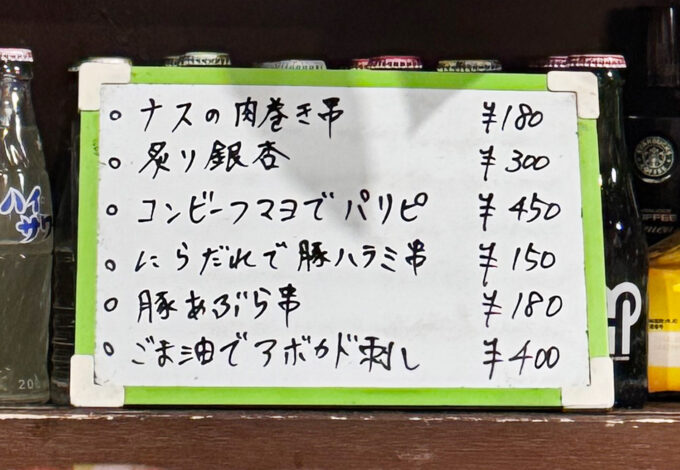 ○ ナスの肉巻き串 ¥180
○ 炙り銀杏 ¥300
○ コンビーフマヨでパリピ ¥450
○ にらだれで豚ハラミ串 ¥150
○ 豚あぶら串 ¥180
○ ごま油でアボカド刺し ¥400
ハイ
サワ
20
STARBUCKS
COFFEE